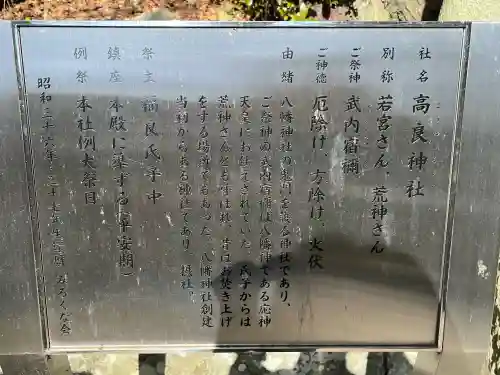 社名 高良神社
別称 若宮さん、荒神さん
ご祭神 武内宿禰
ご神徳 厄除け、方除け、火伏
由緒 八幡神社の鬼門を護る神社であり、
ご祭神の武内宿禰は八幡神である応神
天皇にお仕えされていた。氏子からは
荒神さんとも呼ばれ、昔はお焚き上げ
をする場所でもあった。八幡神社創建
当初からある神社であり 摂社。
祭主 氏子中
鎮座 本殿に準ずる(平安期)
例祭 本社例大祭日
昭和三十六年 みろくだ会